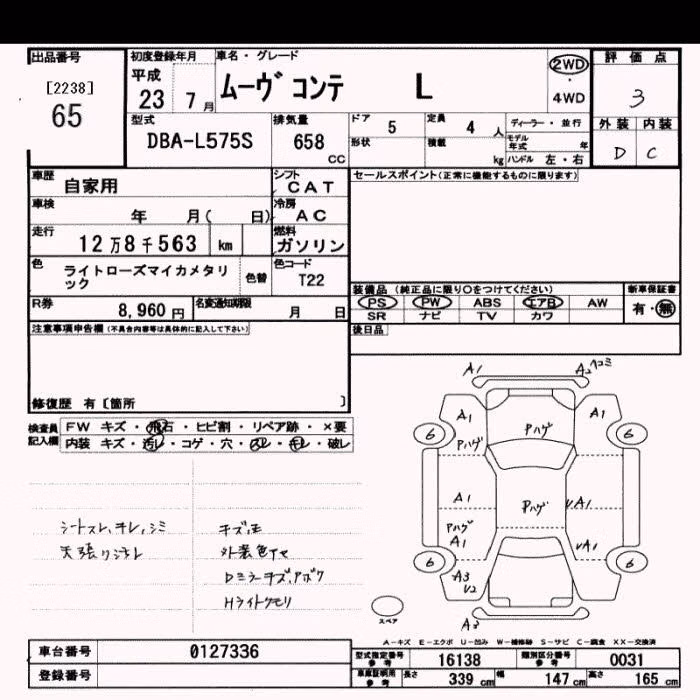 出品番号
[2238]
65
初度登録年月
平成
23 7月
車名・グレード
ムーヴ コンテ L
2WD
・
4WD
評価点
3
外装 内装
D C
型式
DBA-L575S
排気量
658
CC
ドア 5
定員 4 人
形状
積載 kg
ディーラー・並行
モデル年式 年
ハンドル 左・右
車歴
自家用
シフト
CAT
車検
年 月( 日)
冷房
AC
走行
12万8千563 km
燃料
ガソリン
色
ライトローズマイカメタリック
色替
色コード
T22
R券
8,960円
名変通知期限
月 日
セールスポイント(正常に機能するものに限ります)
装備品 (純正品に限り〇をつけてください)
PS PW ABS エアB AW
SR ナビ TV カワ
新車保証書
有・無
後日品
注意事項申告欄(不具合内容等は具体的に記入して下さい)
修復歴 有[箇所 ]
検査員記入欄
FW キズ・飛石・ヒビ割・リペア跡・×要
内装 キズ・汚レ・コゲ・穴・スレ・キレ・破レ
シートスレ、キレ、シミ
天張リヨゴレ
キズ、凹
外装色アセ
Dミラーキズ、アボク
Hライトクモリ
A1 A2 ヘコミ
A1 A1
6 6
Pハゲ Pハゲ
A1 Pハゲ UA1
Pハゲ
A1 UA1
6 6
A3
U2
A3
スペア
A-キズ E-エクボ U-凹み W-補修跡 S-サビ C-腐食 XX-交換済
車台番号
0127336
登録番号
型式指定番号
参考
16138
類別区分番号
参考
0031
車庫証明用
参考
長さ 339 cm
幅 147 cm
高さ 165 cm